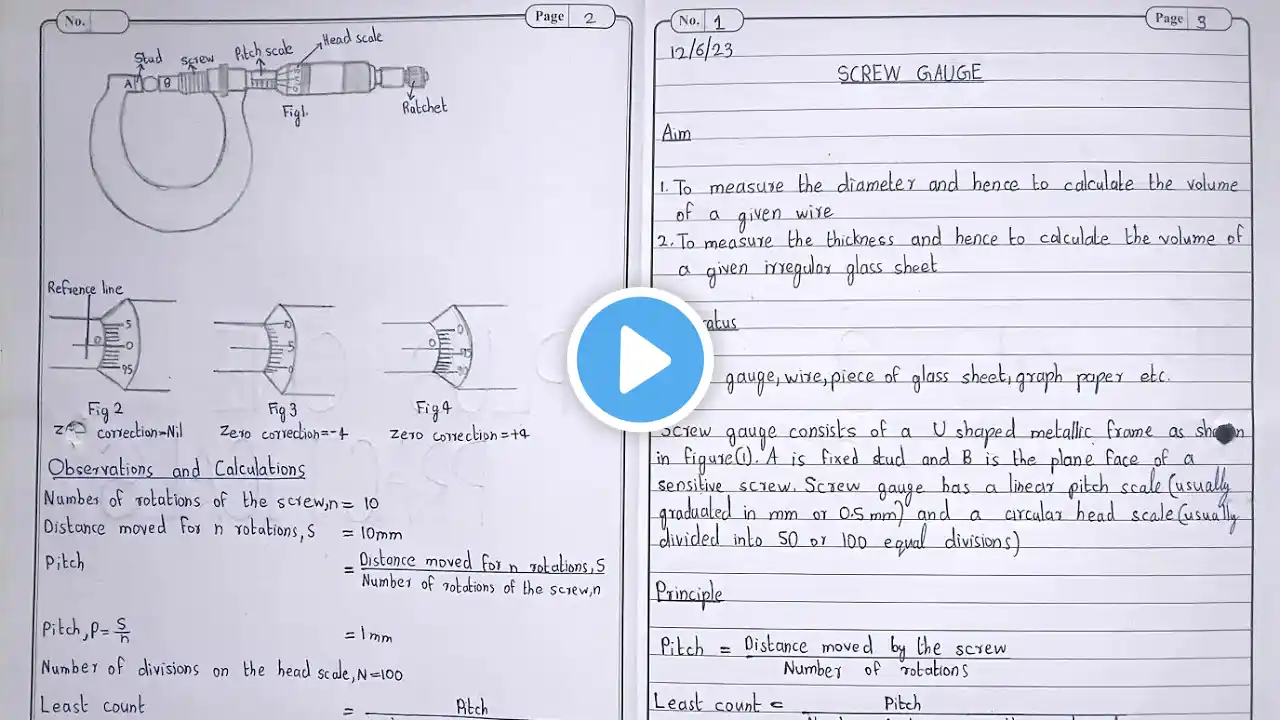 No.
Page 2
Stud
Screw
Pitch scale
Head scale
A
B
Fig1.
Ratchet
Refrence line
5
0
0
95
10
5
0
0
0
95
Fig 2
Fig 3
Fig 4
correction=Nil
Zero correction=-4
Zero correction=+4
Observations and Calculations
Number of rotations of the screw,n= 10
Distance moved for n rotations,S = 10mm
Pitch = Distance moved for n rotations,S
Number of rotations of the screw,n
Pitch,P= S/n = 1mm
Number of divisions on the head scale,N=100
Least count = Pitch
No. 1
Page 3
12/6/23
SCREW GAUGE
Aim
1. To measure the diameter and hence to calculate the volume
of a given wire
2. To measure the thickness and hence to calculate the volume of
a given irregular glass sheet
ratus
gauge, wire, piece of glass sheet, graph paper etc.
Screw gauge consists of a U shaped metallic frame as
in figure(1). A is fixed stud and B is the plane face of a
sensitive screw. Screw gauge has a linear pitch scale (usually
graduated in mm or 0.5 mm) and a circular head scale (usually
divided into 50 or 100 equal divisions)
Principle
Pitch = Distance moved by the screw
Number of rotations
Least count = Pitch